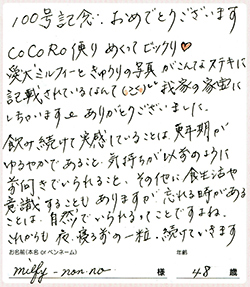 100号記念 おめでとうございます
CoCoRo便り めくって ビックリ♥
愛犬ミルフィーときゅうりの写真がこんなステキに
記載されているなんて(^^) 我家の家宝に
しちゃいます ありがとうございました。
飲み続けて実感していることは、更年期が
ゆるやかであること、気持ちが以前のように
前向きでいられること、その他に食生活や
意識することもありますが 忘れる時がある
ことは、自然でいられるってことですよね。
これからも 夜、寝る前の一粒、続けていきます
お名前(本名 or ペンネーム) 年齢
milfy-non.no 様 48 歳